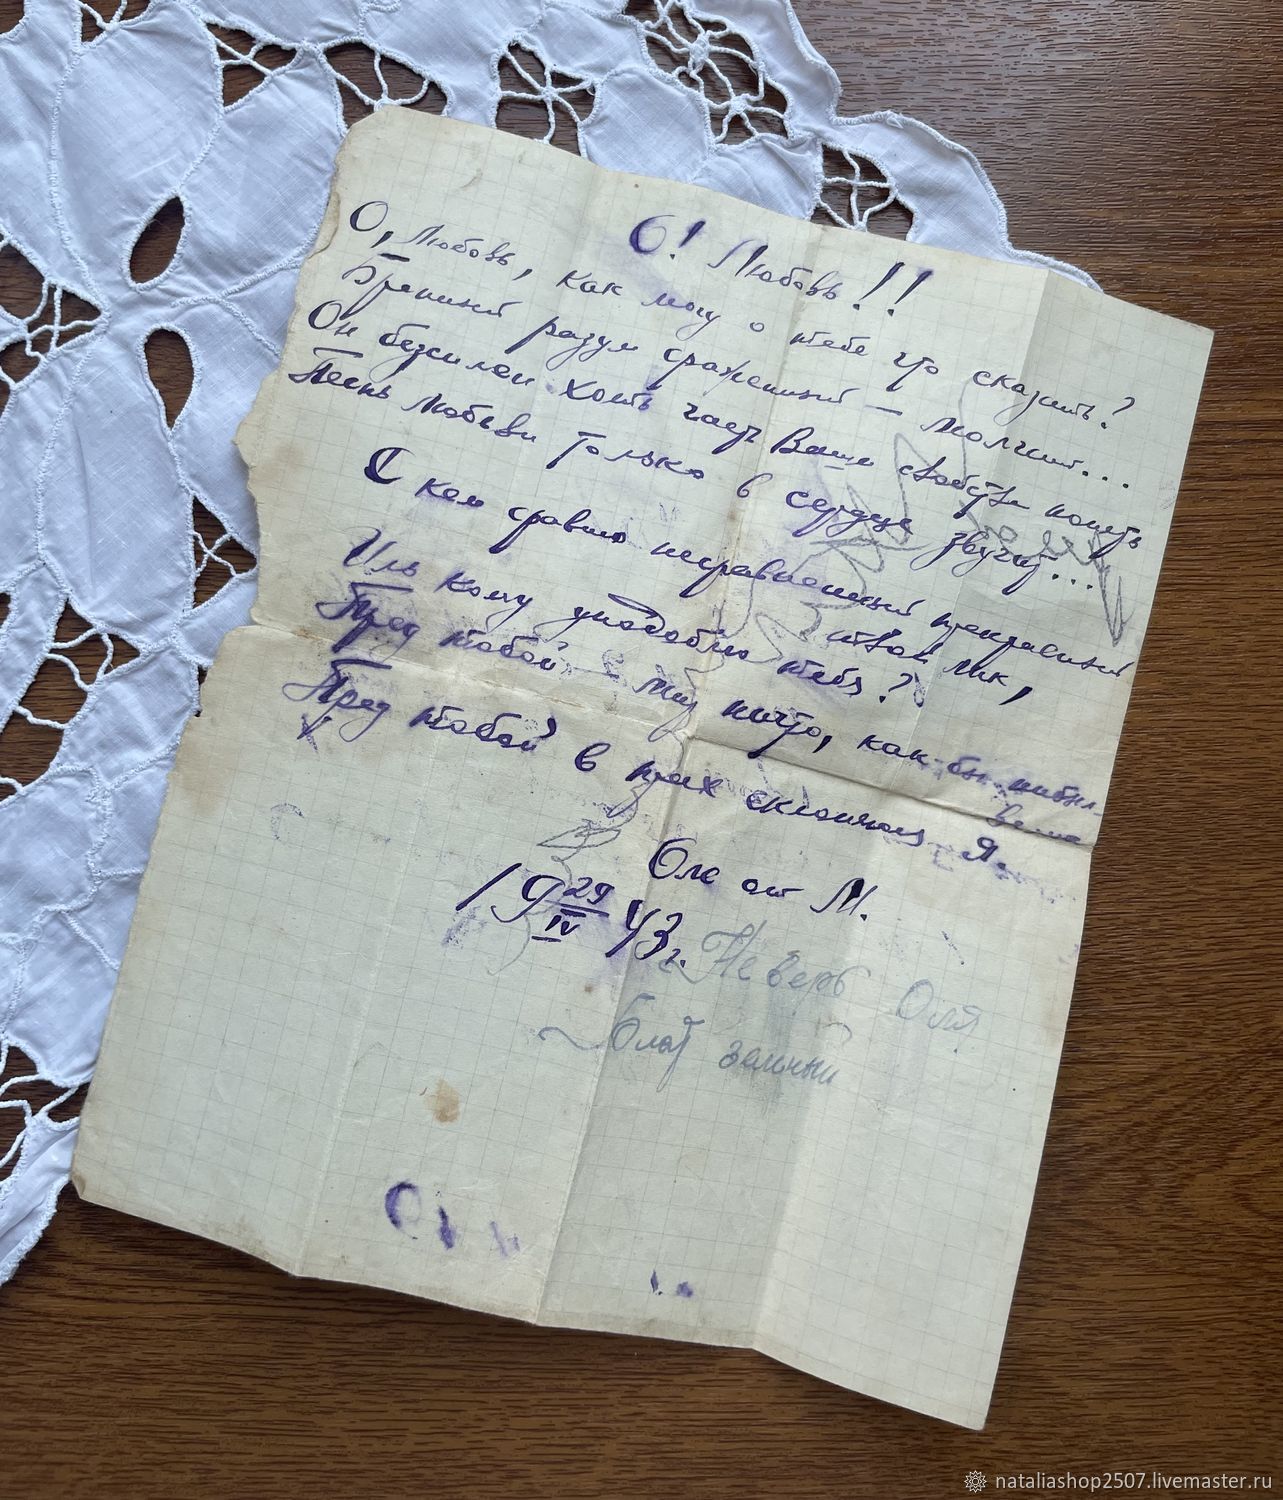 О! Любовь!!
О, Любовь, как могу о тебе что сказать?
Бренный разум сраженный – молчит...
Он безсилен хоть часть Ваши свойства понять
Песнь Любви только в сердце звучит...
С кем сравню несравненный прекрасный
твой лик,
Иль кому уподоблю тебя?
Пред тобой – мир ничто, как-бы небыл
Пред тобой в прах склоняюсь Я.
Оле от М.
19 29/IV 43г.
Неверь Оля
земный
nataliashop2507.livemaster.ru